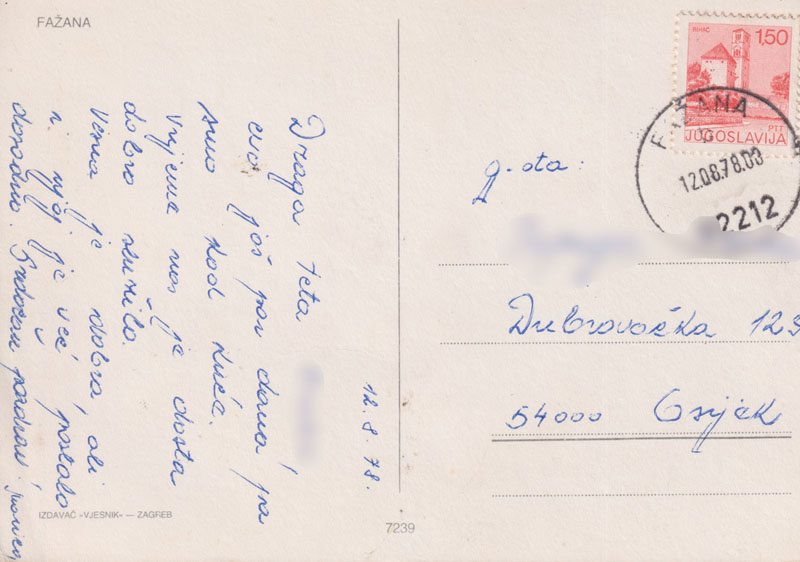 FAŽANA
12.8.78.
Draga teta
evo još par dana pa
smo kod kuće.
Vrijeme nas je dosta
dobro služilo.
Vesna je dobra, ali
i njoj je već postalo
dosadno. Srdačan pozdrav!
IZDAVAČ »VJESNIK« — ZAGREB
7239
BIHAĆ
1,50
PTT
JUGOSLAVIJA
FAŽANA
12.08.78.00
2212
g-đa:
Dubrovačka
54000 Osijek